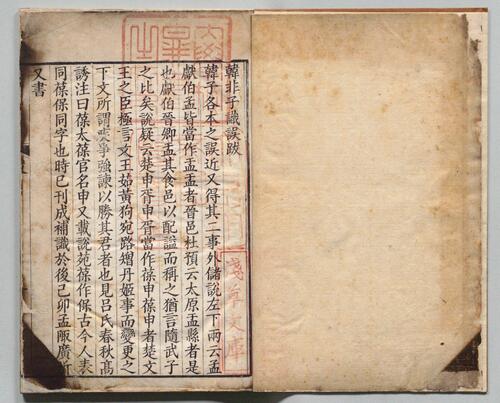 韓非子識誤跋
韓子各本之誤近又得其二事外儲說左下兩云孟
獻伯孟皆當作盂盂者晉邑杜預云太原盂縣者是
也獻伯晉卿盂其食邑以配謚而稱之猶言隨武子
之比矣說疑云楚申胥申胥當作葆申葆申者楚文
王之臣極言文王茹黃狗宛路矰丹姬事而變更之
下文所謂疾爭強諫以勝其君者也見呂氏春秋高
誘注曰葆太葆官名申又載說苑葆作保古今人表
同葆保同字也時已刊成補識於後己卯孟陬廣圻
又書
淺草文庫